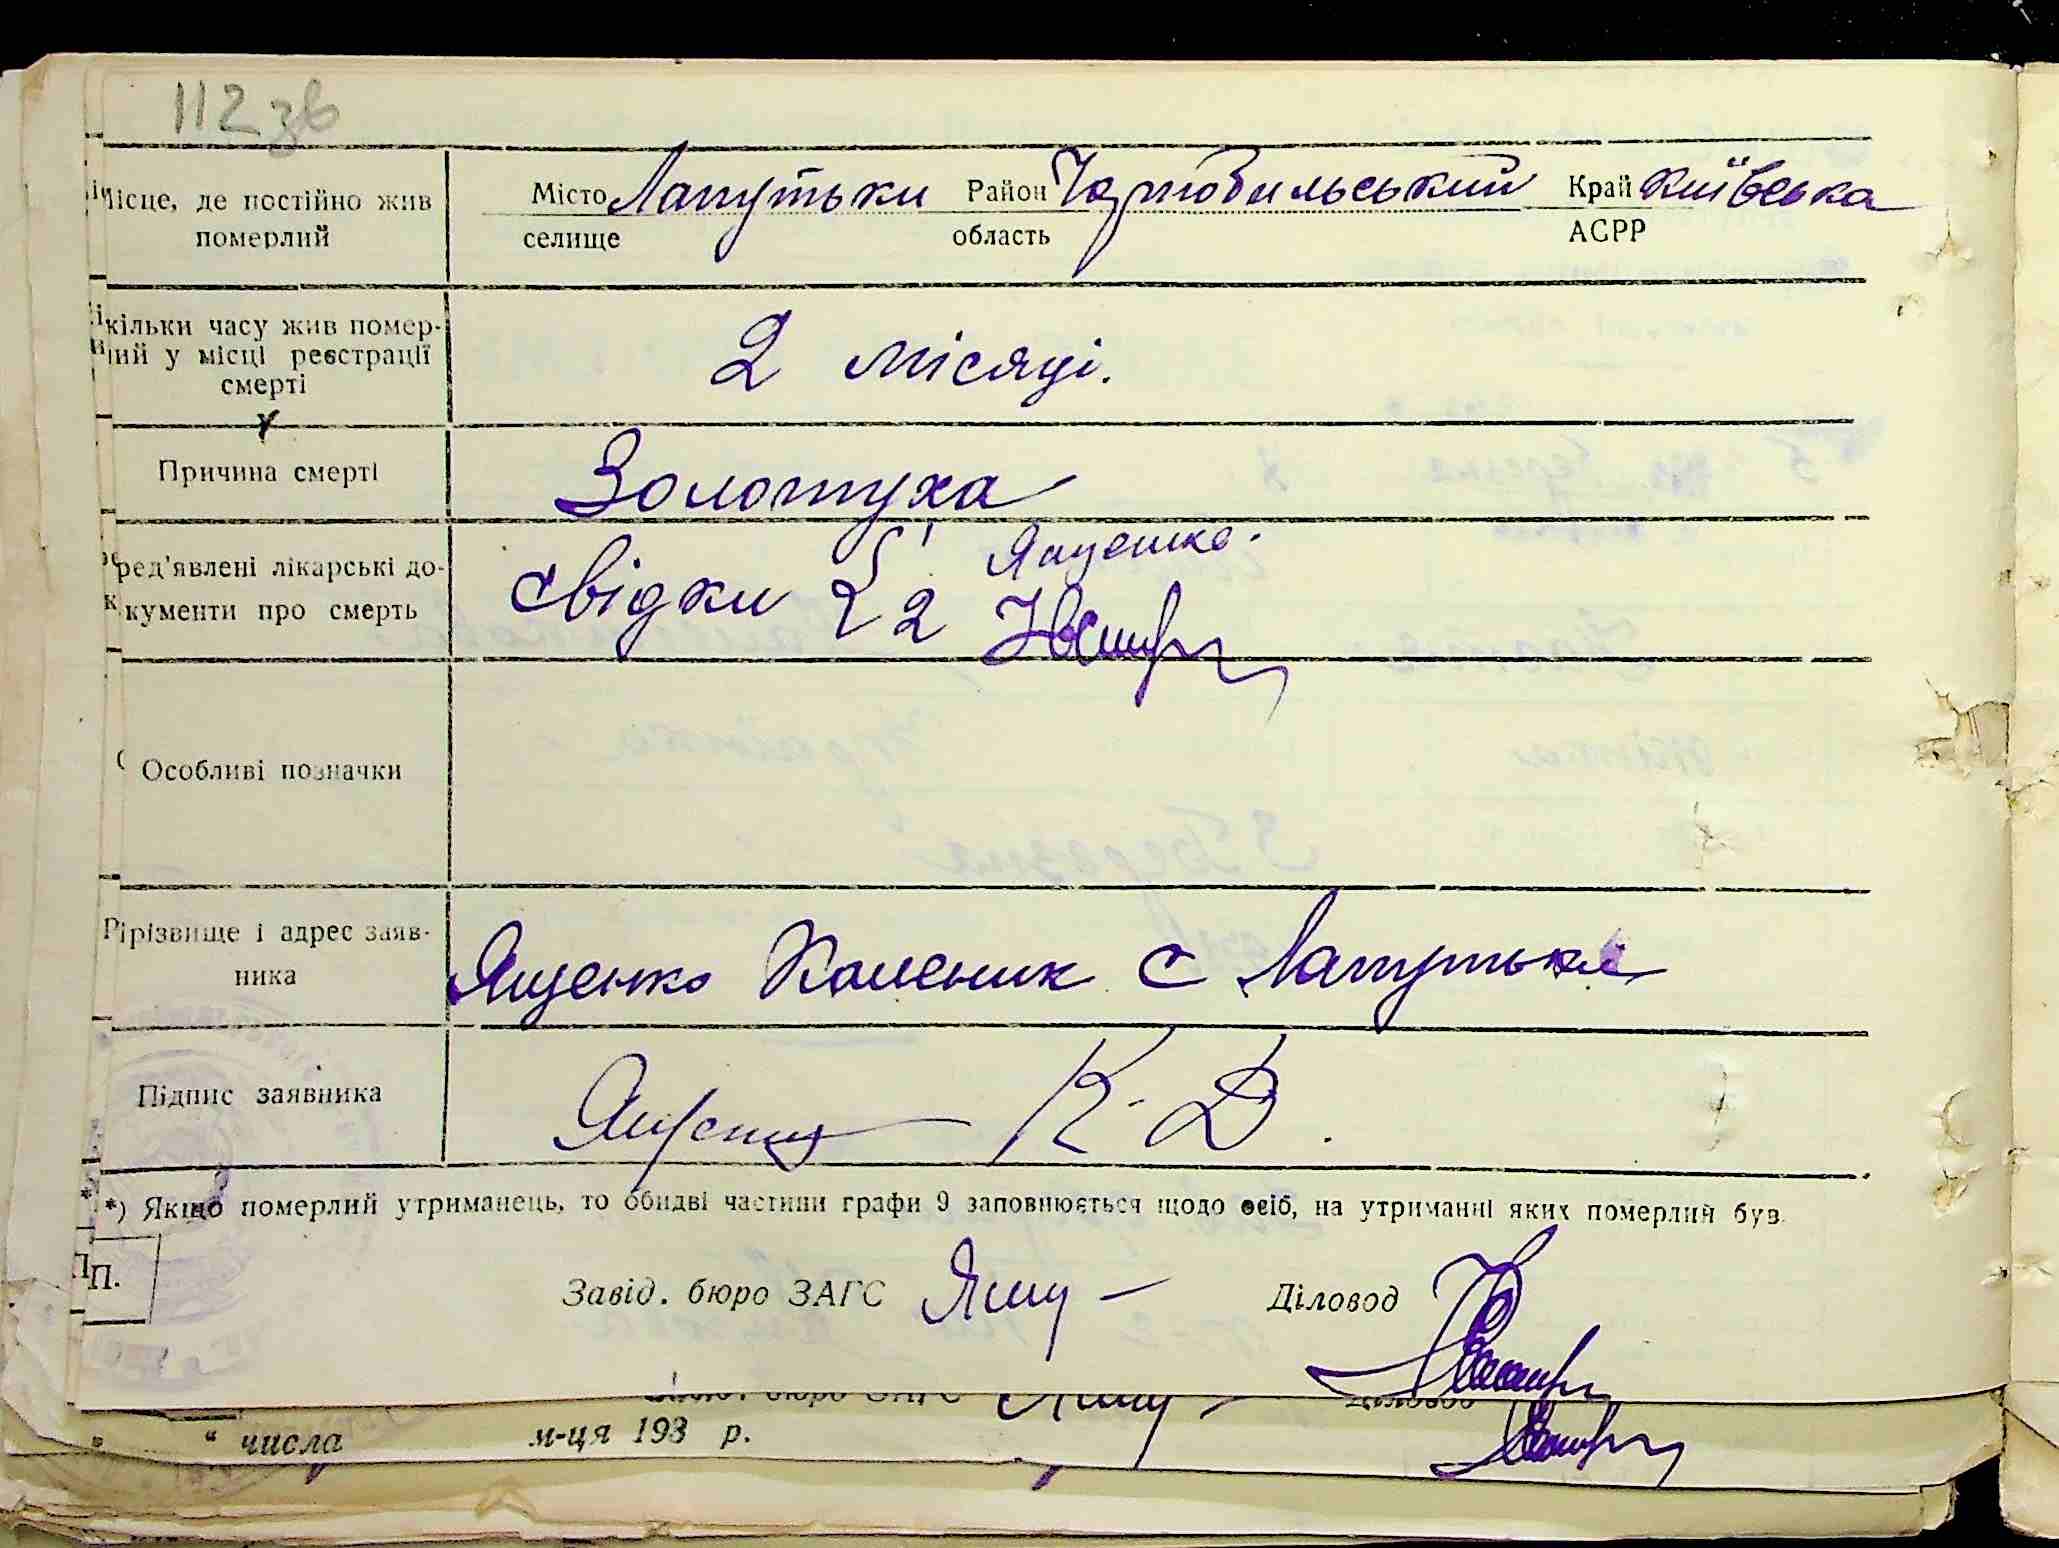 112зв
Місце, де постійно жив померлий
Місто Лапутьки Район Чорнобильський Край Київська
селище область АСРР
Скільки часу жив помер-
лий у місці реєстрації
смерті
2 місяці.
Причина смерті
Золотуха
Пред'явлені лікарські до-
кументи про смерть
свідки 1 Ященко.
2
Особливі позначки
Прізвище і адрес заяв-
ника
Ященко Каленик с Лапутьки
Підпис заявника
Ященко К. Д.
*) Якщо померлий утриманець, то обидві частини графи 9 заповнюється щодо осіб, на утриманні яких померлий був.
П.
Завід. бюро ЗАГС Діловод
Завід. бюро ЗАГС Діловод
" " числа м-ця 193 р.